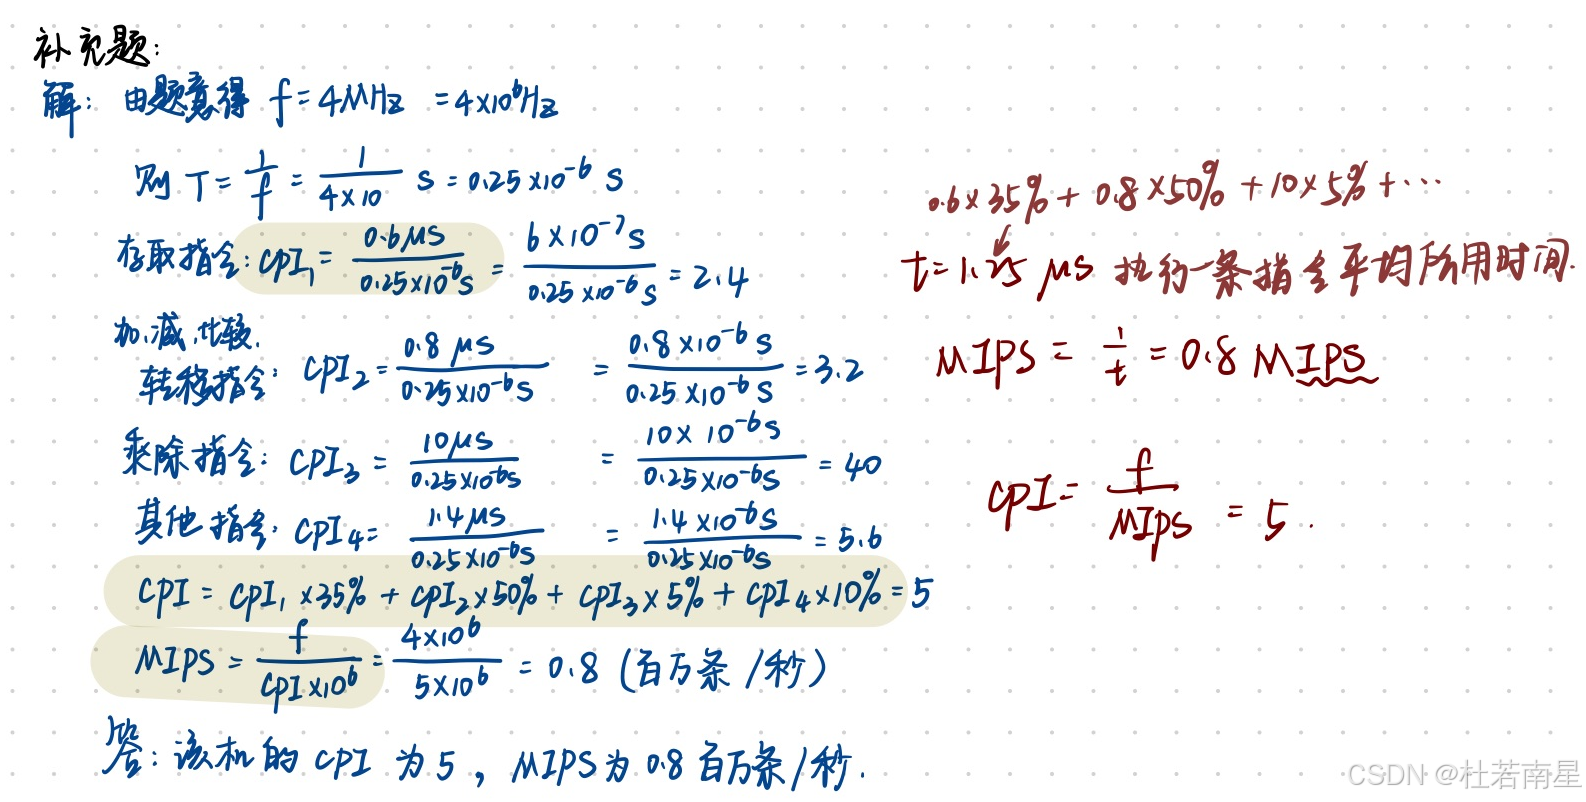 补充题:
解: 由题意得 f=4MHz =4×10⁶Hz
则 T= 1/f = 1/(4×10) s = 0.25×10⁻⁶ s
存取指令: CPI₁= 0.6μs/(0.25×10⁻⁶s) = 6×10⁻⁷s/(0.25×10⁻⁶s) = 2.4
加、减、比较、
转移指令: CPI₂= 0.8μs/(0.25×10⁻⁶s) = 0.8×10⁻⁶s/(0.25×10⁻⁶s) = 3.2
乘除指令: CPI₃ = 10μs/(0.25×10⁻⁶s) = 10×10⁻⁶s/(0.25×10⁻⁶s) = 40
其他指令: CPI₄= 1.4μs/(0.25×10⁻⁶s) = 1.4×10⁻⁶s/(0.25×10⁻⁶s) = 5.6
CPI = CPI₁×35% + CPI₂×50% + CPI₃×5% + CPI₄×10% = 5
MIPS = f/(CPI×10⁶) = 4×10⁶/(5×10⁶) = 0.8 (百万条/秒)
答: 该机的 CPI 为 5, MIPS为 0.8 百万条/秒.
0.6×35% + 0.8×50% + 10×5% + ···
t=1.25 μs 执行一条指令平均所用时间.
MIPS = 1/t = 0.8 MIPS
CPI= f/MIPS = 5.
CSDN @杜若南星